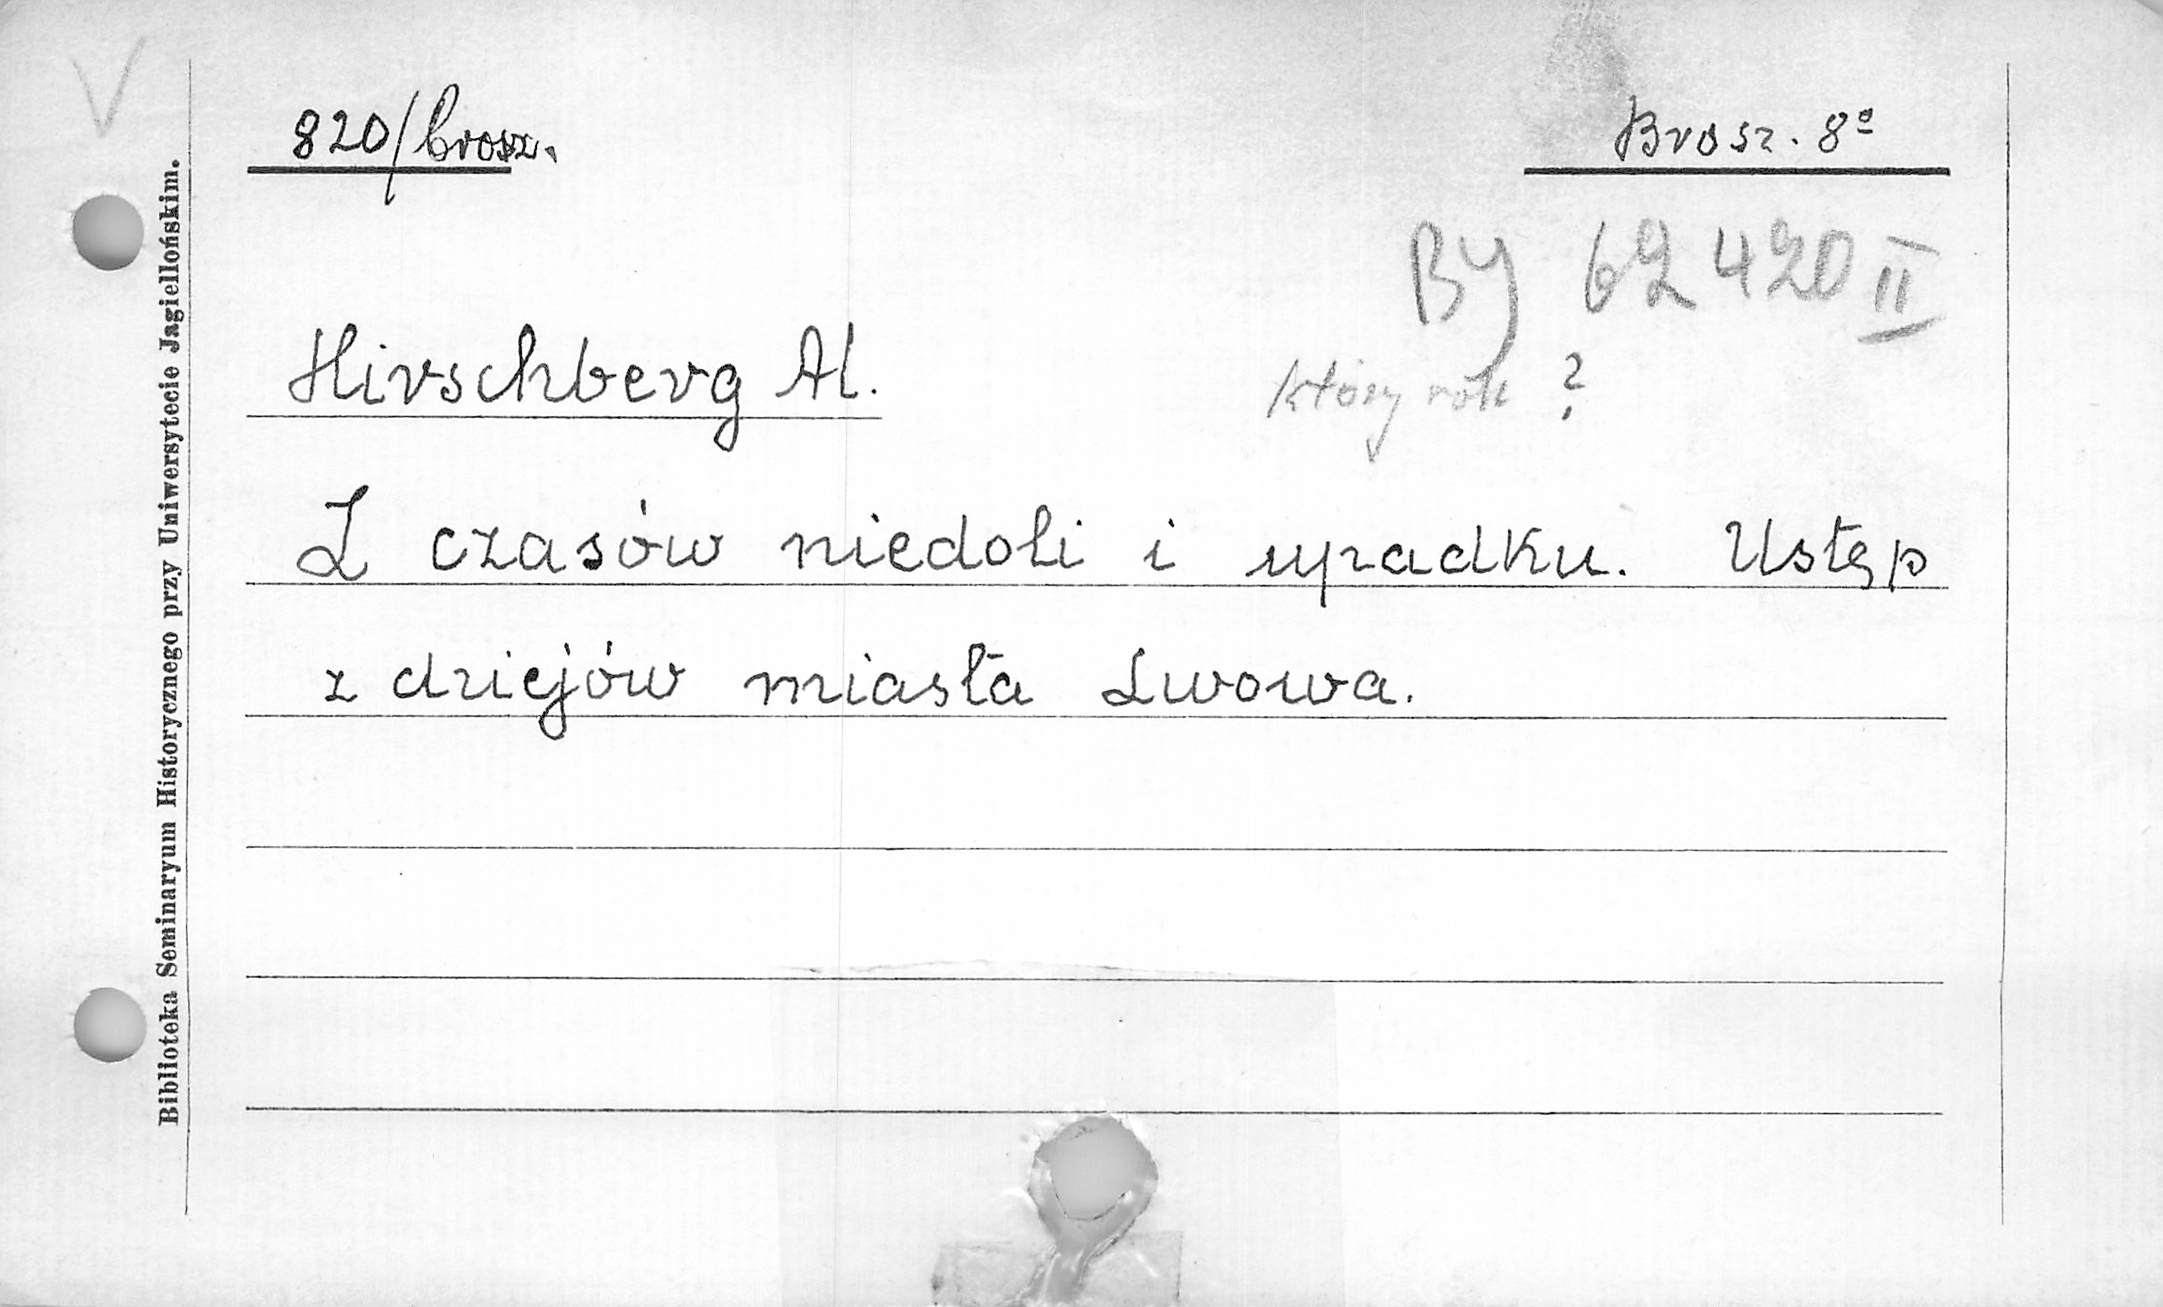 V
820/brosz.
Brosz. 8º
BJ 62420 II
który rok?
Hirschberg Al.
Z czasów niedoli i upadku. Ustęp
z dziejów miasta Lwowa.
Biblioteka Seminaryum Historycznego przy Uniwersytecie Jagiellońskim.